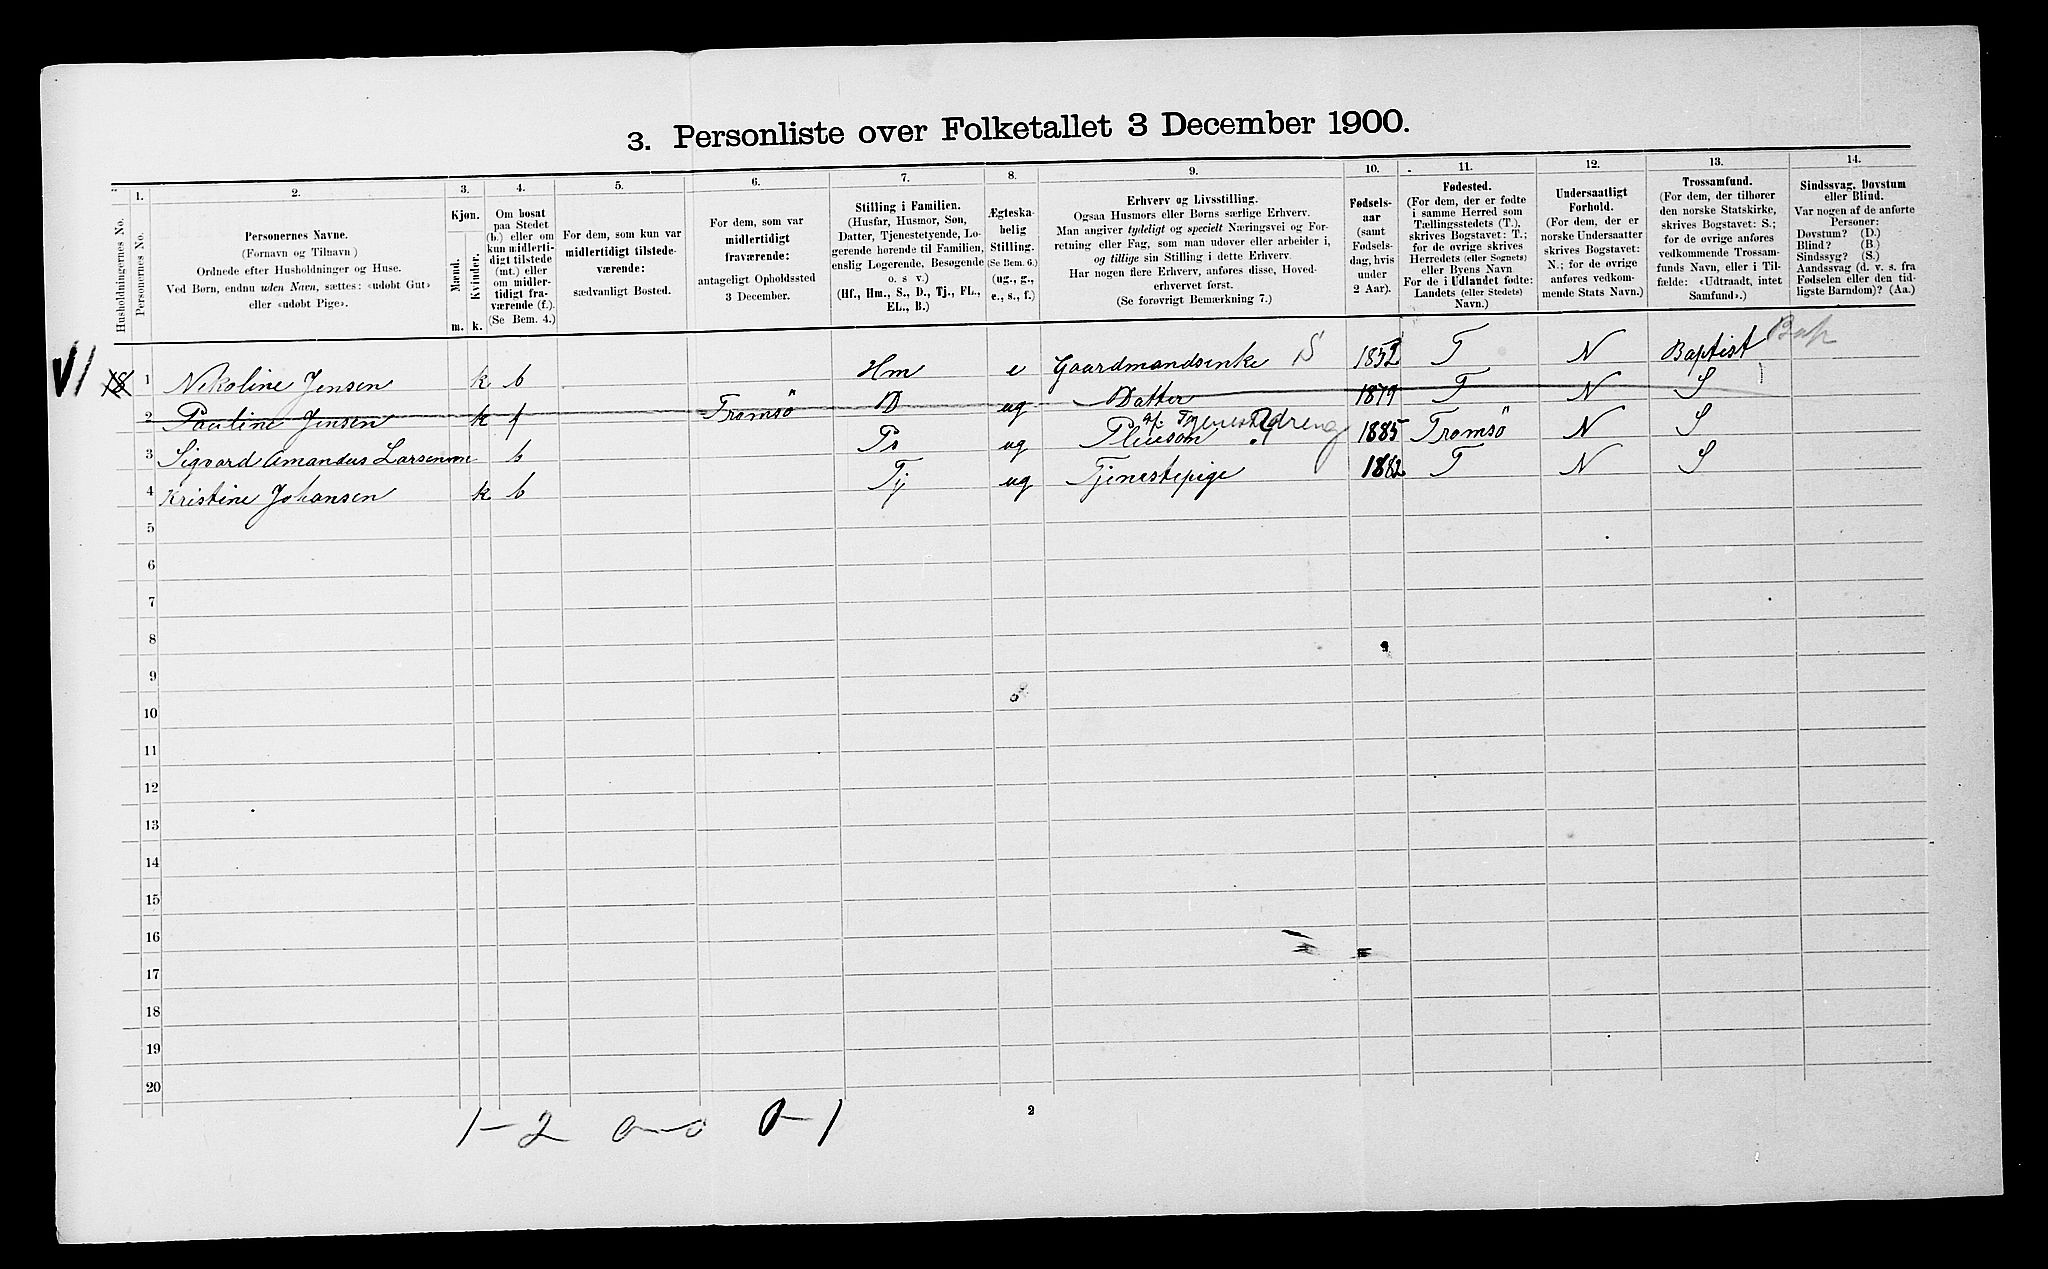 3. Personliste over Folketallet 3 December 1900.
1. 2. 3. 4. 5. 6. 7. 8. 9. 10. 11. 12. 13. 14.
Husholdningernes No.
Personernes No.
Personernes Navne.
(Fornavn og Tilnavn)
Ordnede efter Husholdninger og Huse.
Ved Børn, endnu uden Navn, sættes: «udøbt Gut»
eller «udøbt Pige».
Kjøn.
Mænd.
Kvinder.
m. k.
Om bosat
paa Stedet
(b.) eller om
kun midlerti-
digt tilstede
(mt.) eller
om midler-
tidigt fra-
værende (f.).
(Se Bem. 4.)
For dem, som kun var
midlertidigt tilstede-
værende:
sædvanligt Bosted.
For dem, som var
midlertidigt
fraværende:
antageligt Opholdssted
3 December.
Stilling i Familien.
(Husfar, Husmor, Søn,
Datter, Tjenestetyende, Lo-
gerende hørende til Familien,
enslig Logerende, Besøgende
o. s v.)
(Hf., Hm., S., D., Tj., FL.,
EL., B.)
Ægteska-
belig
Stilling.
(Se Bem. 6.)
(ug., g.,
e., s., f.)
Erhverv og Livsstilling.
Ogsaa Husmors eller Børns særlige Erhverv.
Man angiver tydeligt og specielt Næringsvei og For-
retning eller Fag, som man udover eller arbeider i,
og tillige sin Stilling i dette Erhverv.
Har nogen flere Erhverv, anføres disse, Hoved-
erhvervet først.
(Se forøvrigt Bemærkning 7.)
Fødsels-
aar
(samt
Fødsels-
dag, hvis
under
2 Aar).
Fødested.
(For dem, der er fødte
i samme Herred som
Tællingsstedets (T.),
skrives Bogstavet: T.;
for de øvrige skrives
Herredets (eller Sognets)
eller Byens Navn
For de i Udlandet fødte:
Landets (eller Stedets)
Navn.)
Undersaatligt
Forhold.
(For dem, der er
norske Undersaatter
skrives Bogstavet:
N.; for de øvrige
anføres vedkom-
mende Stats Navn.)
Trossamfund.
(For dem, der tilhører
den norske Statskirke,
skrives Bogstavet: S.;
for de øvrige anføres
vedkommende Trossam-
funds Navn, eller i Til-
fælde: «Udtraadt, intet
Samfund».)
Sindssvag, Døvstum
eller Blind.
Var nogen af de anførte
Personer:
Døvstum? (D.)
Blind? (B.)
Sindssyg? (S.)
Aandssvag (d. v. s. fra
Fødselen eller den tid-
ligste Barndom)? (Aa.)
18 1 Nikoline Jensen k b Hm e Gaardmandsenke S 1852 T N Baptist Bap
2 Pauline Jensen k f Tromsö D ug Datter 1879 T N S
3 Sigvard Amandus Larsen m b Ps ug Pleiesön Tjenestedreng 1885 Tromsö N S
4 Kristine Johansen k b Tj ug Tjenestepige 1882 T N S
5
6
7
8
9
10
11
12
13
14
15
16
17
18
19
20
1-2 0-0 0-1
2